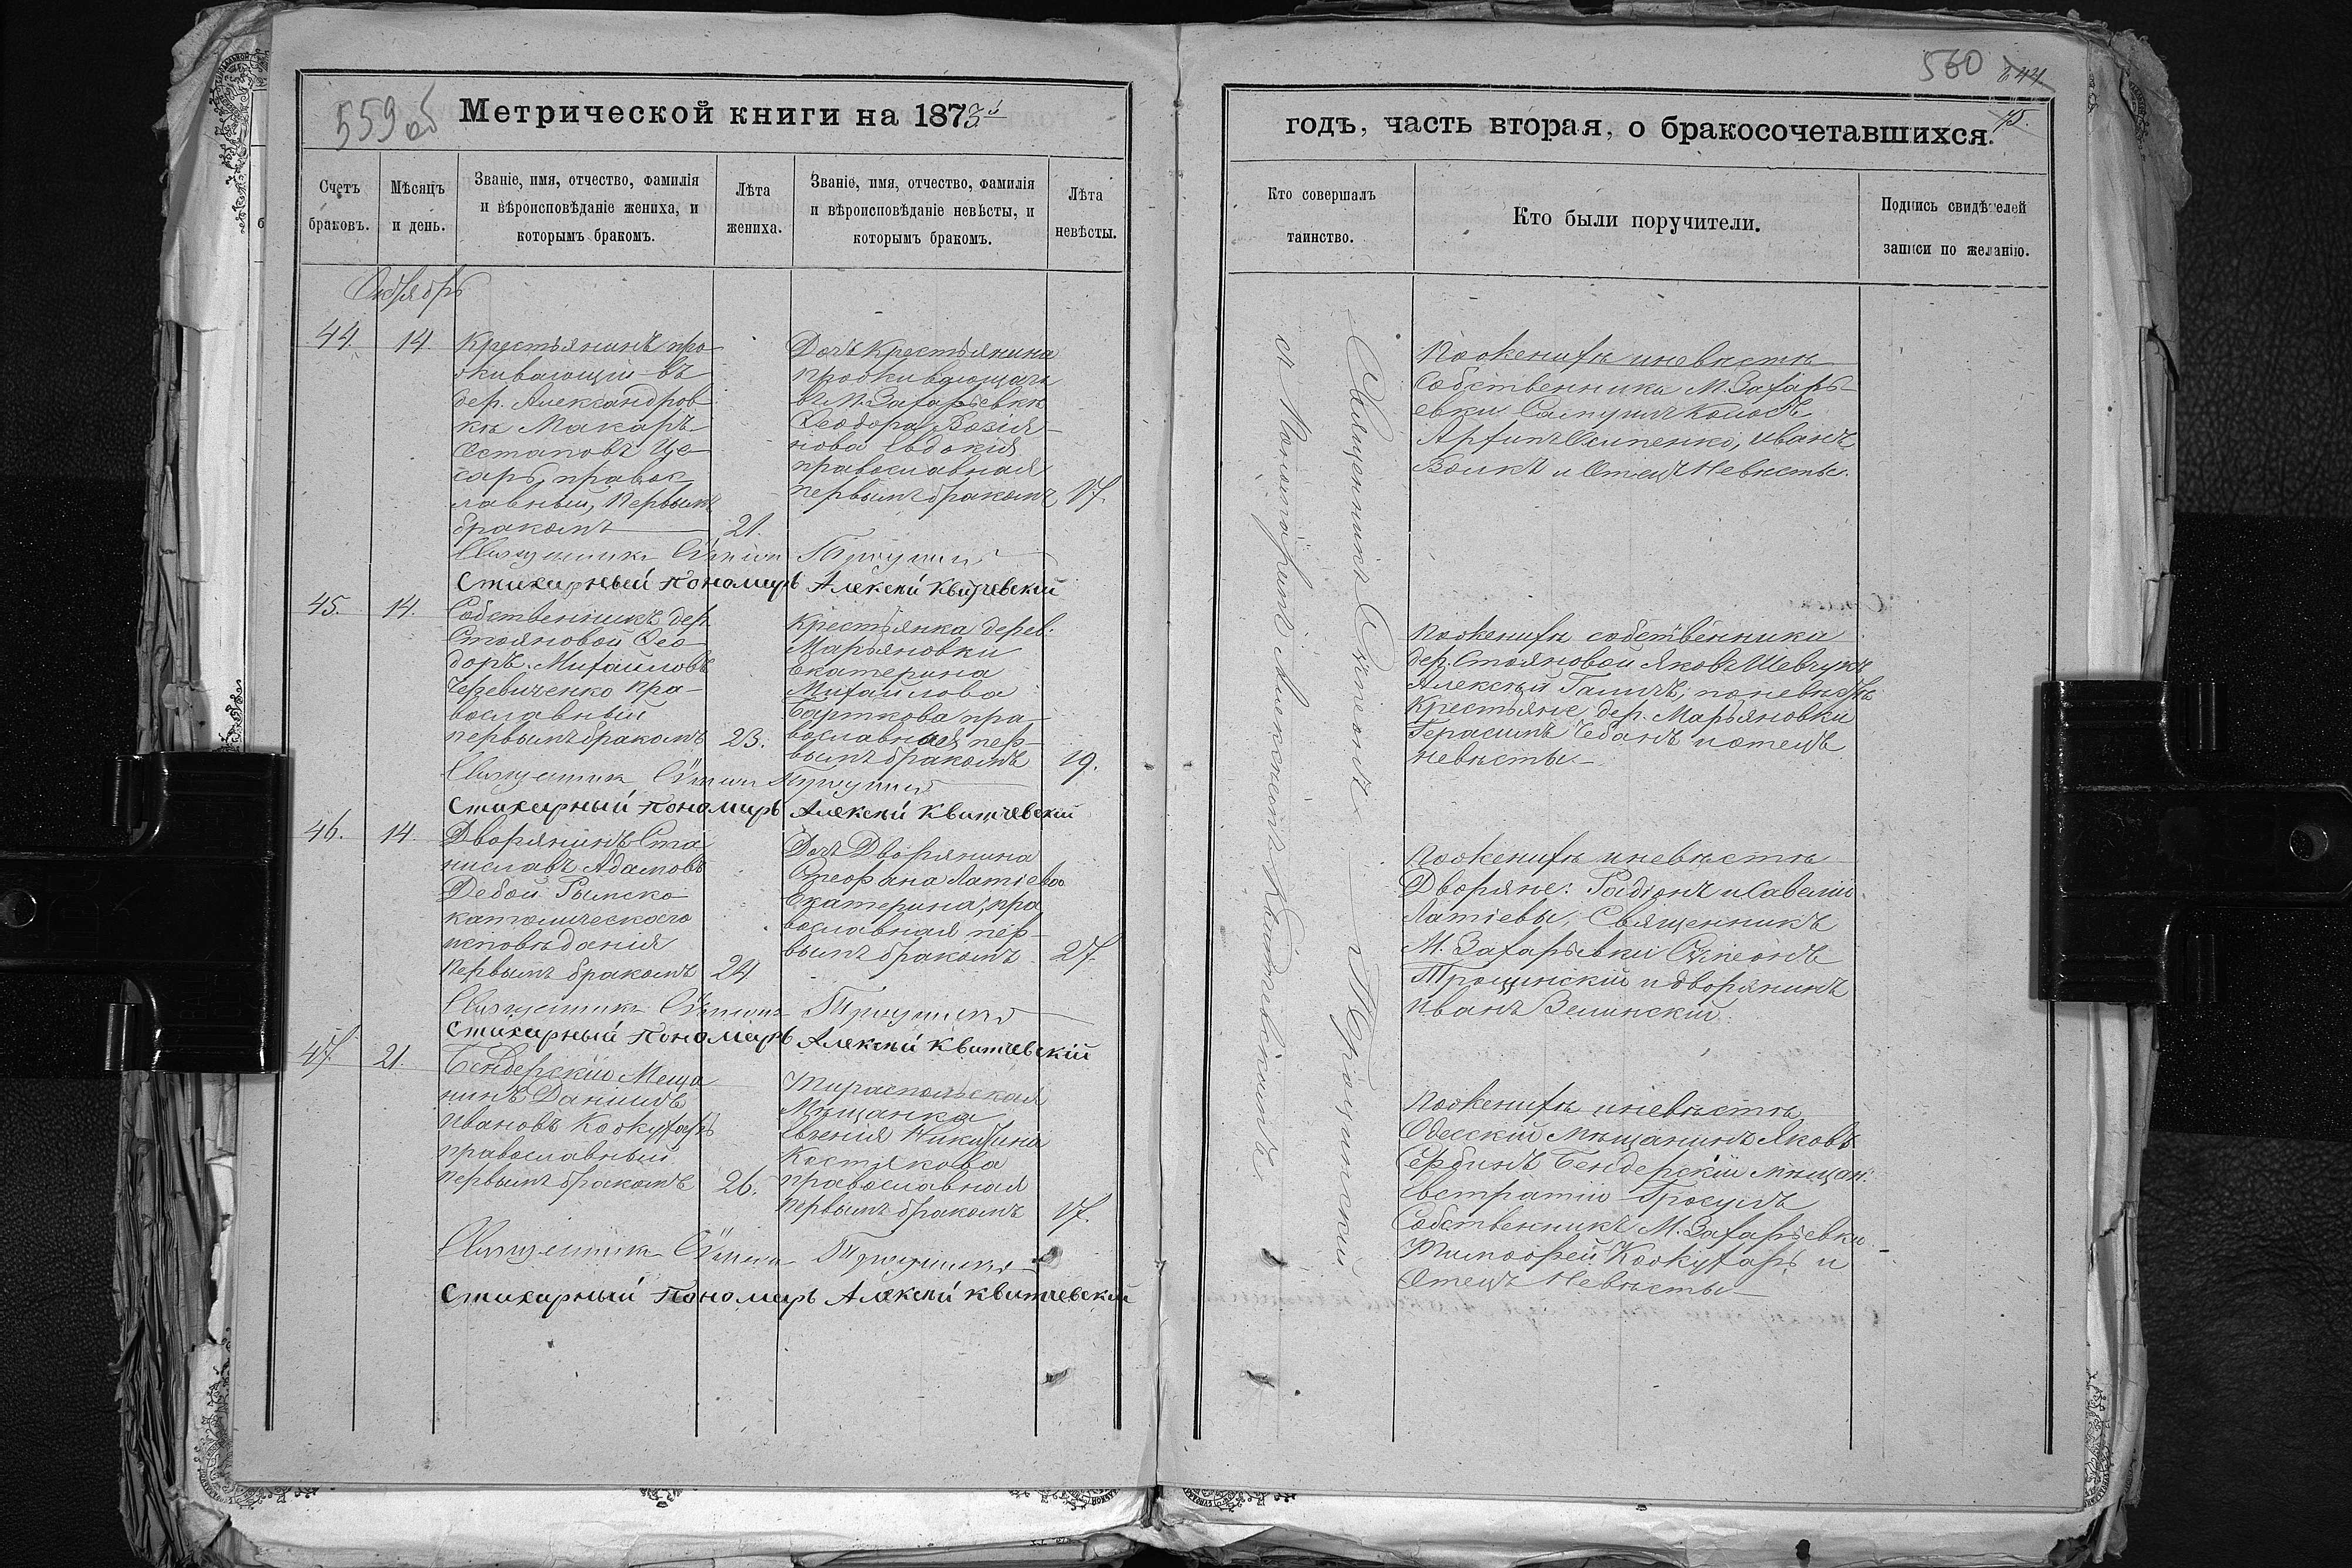 559 об
Метрической книги на 1873й
Счетъ браковъ.
Мѣсяцъ и день.
Званіе, имя, отчество, фамилія
и вѣроисповѣданіе жениха, и
которымъ бракомъ.
Лѣта жениха.
Званіе, имя, отчество, фамилія
и вѣроисповѣданіе невѣсты, и
которымъ бракомъ.
Лѣта невѣсты.
Октябрь
44. 14.
Крестьянинъ про
живающій въ
дер. Александров
кѣ Макаръ
Остаповъ Це
сарь, правос
лавный, первымъ
бракомъ
21.
Дочь крестьянина
проживающаго
въ М. Захарьевкѣ
Ѳеодора Возія
нова Евдокія
православная
первымъ бракомъ
17.
Священникъ Сѵмеонъ
Стихарный пономарь Алексѣй Квитчевскій
45. 14.
Собственникъ дер.
Стояновой Ѳео
доръ Михайловъ
Черевиченко пра-
вославный
первымъ бракомъ
23.
Крестьянка дерев.
Марьяновки
Екатерина
Михайлова
Барткова пра
вославная пер-
вымъ бракомъ
19.
Священникъ Сѵмеонъ
Стихарный пономарь Алексѣй Квитчевскій
46. 14.
Дворянинъ Ста
ниславъ Адамовъ
Дебой Римско
католическаго
исповѣданія
первымъ бракомъ
24
Дочь Дворянина
Латіева
Екатерина, пра
вославная пер-
вымъ бракомъ
27.
Священникъ Сѵмеонъ
Стихарный пономарь Алексѣй Квитчевскій
47. 21.
Бендерскій Меща
нинъ Даніилъ
Ивановъ Кожухарь
православный
первымъ бракомъ
26.
Тираспольская
Мѣщанка
Евгенія Никитина
Костякова
православная
первымъ бракомъ
17.
Священникъ Сѵмеонъ
Стихарный пономарь Алексѣй Квитчевскій
560
544
75.
годъ, часть вторая, о бракосочетавшихся.
Кто совершалъ
таинство.
Кто были поручители.
Подпись свидѣтелей
записи по желанію.
Священникъ Сѵмеонъ Трощинскій
съ Пономаремъ Алексѣемъ Квитчевскимъ.
По женихѣ и невѣстѣ
Собственники М. Захарь
евки
Архипъ Осипенко, Иванъ
Волкъ и Отецъ Невѣсты.
По женихѣ собственники
дер. Стояновой Яковъ Шевчукъ
Алексѣй Галичъ, по невѣстѣ
Крестьяне дер. Марьяновки
Герасимъ Чебанъ и отецъ
невѣсты
По женихѣ и невѣстѣ
Дворяне: Радіонъ и Савелій
Латіевы, Священникъ
М. Захарьевки Сѵмеонъ
Трощинскій и дворянинъ
Иванъ Велинскій.
По женихѣ и невѣстѣ
Одесскій мѣщанинъ Яковъ
Сербинъ Бендерскій мѣщан:
Евстратій Гросулъ
Собственникъ М. Захарьевки
Тимофей Кожухарь и
Отецъ Невѣсты